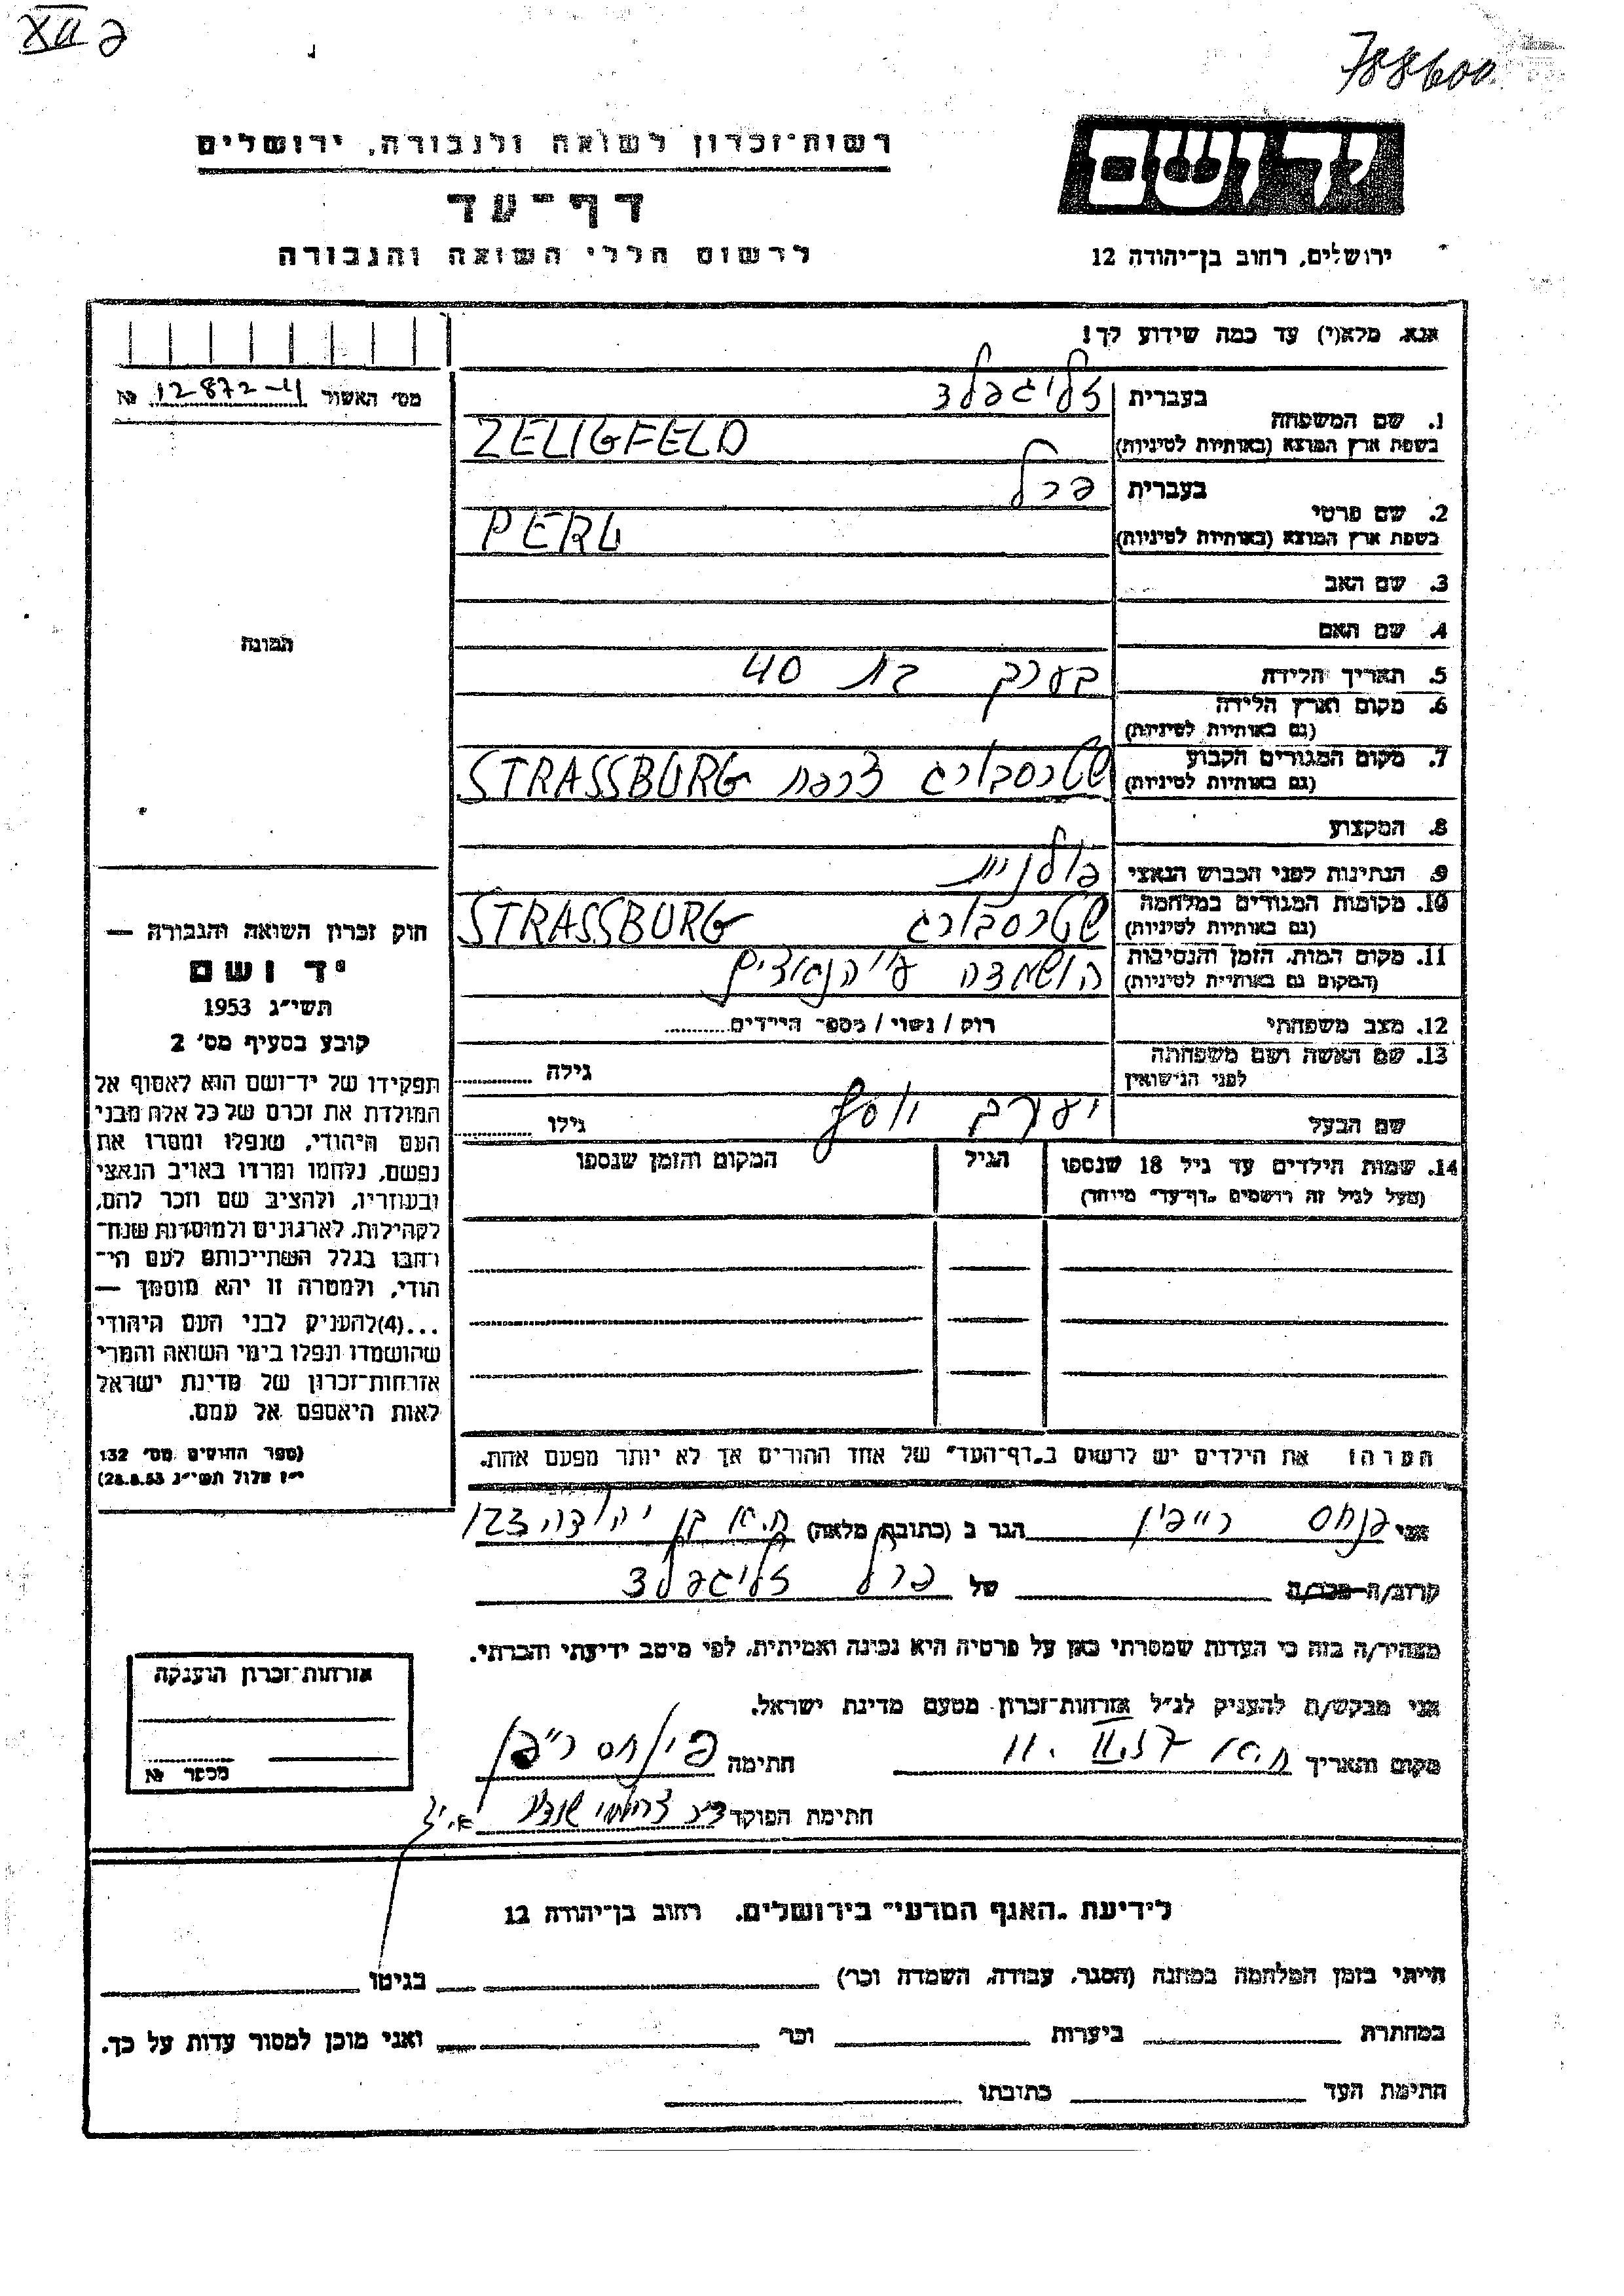 XII 2
788600
רשות־זכרון לשואה ולגבורה, ירושלים
דף־עד
לרשום חללי השואה והגבורה
יד ושם
ירושלים, רחוב בן־יהודה 12
אנא, מלא(י) עד כמה שידוע לך!
מס׳ האשור 12872-4 №
1. שם המשפחה
בעברית זליגפלד
בשפת ארץ המוצא (באותיות לטיניות) ZELIGFELD
2. שם פרטי
בעברית פרל
בשפת ארץ המוצא (באותיות לטיניות) PERL
3. שם האב
4. שם האם
5. תאריך הלידה בערך בת 40
6. מקום וארץ הלידה
(גם באותיות לטיניות)
7. מקום המגורים הקבוע שטרסבורג צרפת STRASSBURG
(גם באותיות לטיניות)
8. המקצוע
9. הנתינות לפני הכבוש הנאצי פולנית
10. מקומות המגורים במלחמה שטרסבורג STRASSBURG
(גם באותיות לטיניות)
11. מקום המות, הזמן והנסיבות הושמדה ע״י הנאצים
(המקום גם באותיות לטיניות)
12. מצב משפחתי רוק / נשוי / מספר הילדים
13. שם האשה ושם משפחתה
לפני הנישואין גילה
שם הבעל יעקב יוסף גילו
14. שמות הילדים עד גיל 18 שנספו הגיל המקום והזמן שנספו
(מעל לגיל זה רושמים „דף־עד״ מיוחד)
התמונה
חוק זכרון השואה והגבורה —
יד ושם
תשי״ג 1953
קובע בסעיף מס׳ 2
תפקידו של יד־ושם הוא לאסוף אל
המולדת את זכרם של כל אלה מבני
העם היהודי, שנפלו ומסרו את
נפשם, נלחמו ומרדו באויב הנאצי
ובעוזריו, ולהציב שם וזכר להם,
לקהילות, לארגונים ולמוסדות שנח־
רבו בגלל השתייכותם לעם הי־
הודי, ולמטרה זו יהא מוסמך —
...(4)להעניק לבני העם היהודי
שהושמדו ונפלו בימי השואה והמרי
אזרחות־זכרון של מדינת ישראל
לאות היאספם אל עמם.
(ספר החוקים מס׳ 132
י״ז אלול תשי״ג 28.8.53)
הערה: את הילדים יש לרשום ב„דף־העד״ של אחד ההורים אך לא יותר מפעם אחת.
אני פנחס רייפין הגר ב (כתובת מלאה) ת.א בן יהודה 123
קרוב/ה מכר/ה של פרל זליגפלד
מצהיר/ה בזה כי העדות שמסרתי כאן על פרטיה היא נכונה ואמיתית, לפי מיטב ידיעתי והכרתי.
אני מבקש/ת להעניק לנ״ל אזרחות־זכרון מטעם מדינת ישראל.
מקום ותאריך ת.א 11.II.57 חתימה
חתימת הפוקד
אזרחות־זכרון הוענקה
מספר №
לידיעת „האגף המדעי״ בירושלים, רחוב בן־יהודה 12
הייתי בזמן המלחמה במחנה (הסגר, עבודה, השמדה וכו׳) בגיטו
במחתרת ביערות וכו׳ ואני מוכן למסור עדות על כך.
חתימת העד כתובתו